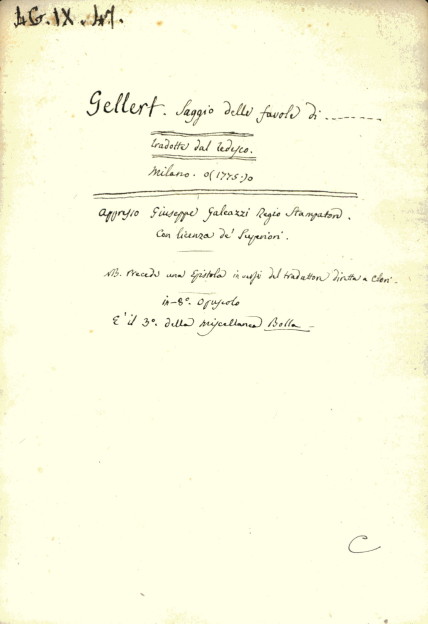 46.IX.47.
Gellert. Saggio delle favole di -------
tradotte dal tedesco.
Milano. o(1775:)o
Appresso Giuseppe Galeazzi Regio Stampatore.
Con licenza de' Superiori.
NB. Precede una Epistola in versi del traduttore diretta a Clori.
in-8º. Opuscolo
E' il 3º. della Miscellanea Bolla -
C